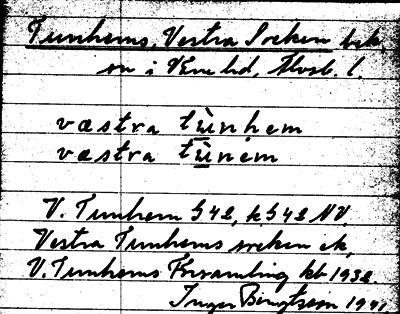 Tunhems, Vestra Socken bek.
sn i Väne hd, Älvsb. l.
væstra tùnhem
væstra tùnem
V. Tunhem 542, k 542 NV
Vestra Tunhems socken ek,
V. Tunhems Församling kb 1932.
Inger Bengtsson 1941